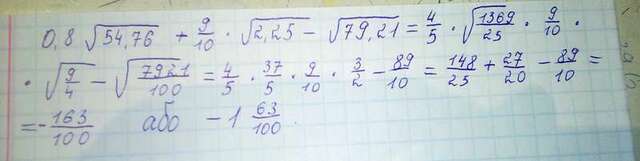 0,8 √54,76 + 9/10 · √2,25 - √79,21 = 4/5 · √1369/25 · 9/10 ·
· √9/4 - √7921/100 = 4/5 · 37/5 · 9/10 · 3/2 - 89/10 = 148/25 + 27/20 - 89/10 =
= - 163/100 або - 1 63/100